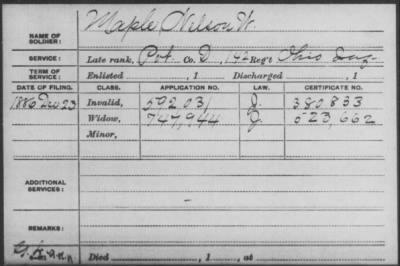 NAME OF SOLDIER: Maple Nelson W.
SERVICE: Late rank, Pvt. Co. D, 142 Reg't Ohio Inf.
TERM OF SERVICE: Enlisted , 1 Discharged , 1
DATE OF FILING. CLASS. APPLICATION NO. LAW. CERTIFICATE NO.
1886 Dec 23 Invalid, 592031 J. 380833
Widow, 747,944 J. 523,662
Minor,
ADDITIONAL SERVICES:
REMARKS:
Died , 1 , at